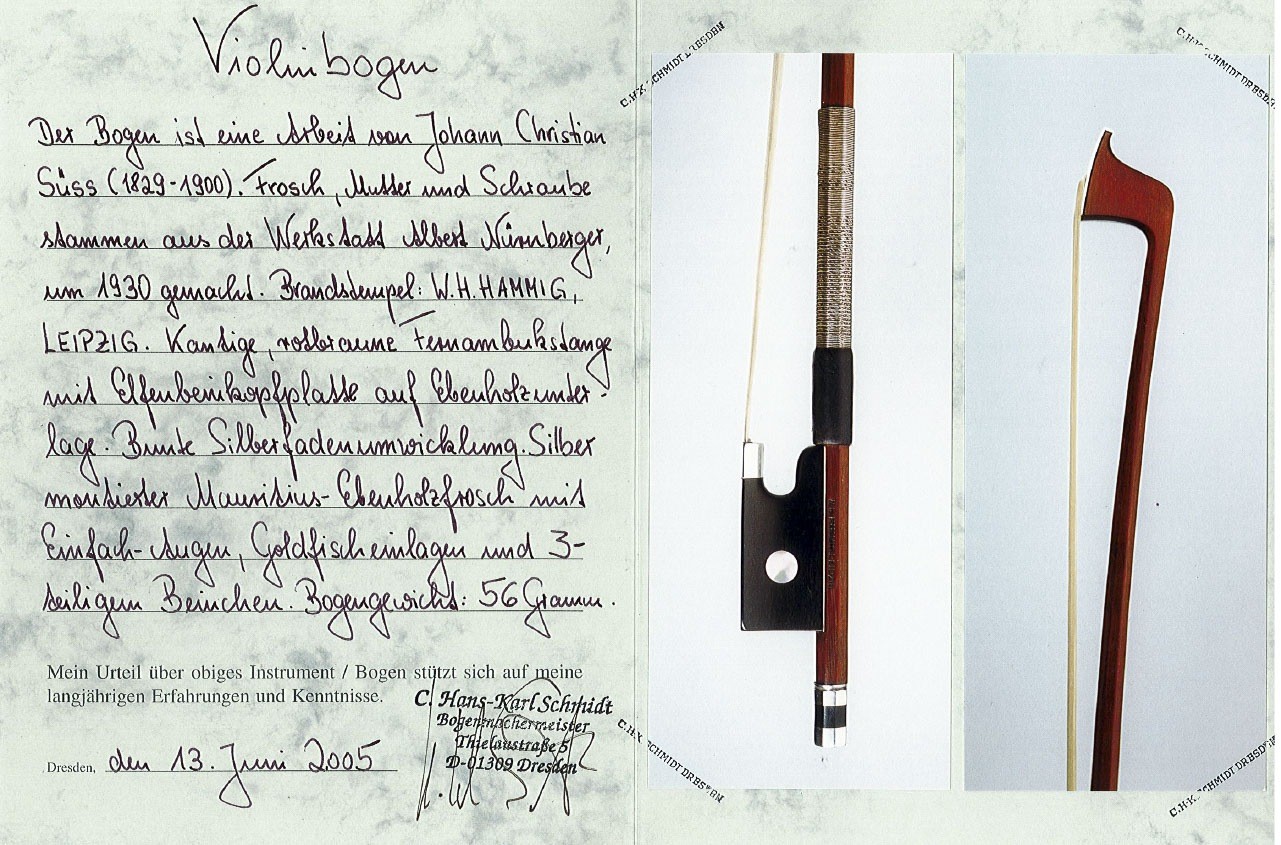 Violinbogen
Der Bogen ist eine Arbeit von Johann Christian
Süss (1829-1900). Frosch, Mutter und Schraube
stammen aus der Werkstatt Albert Nürnberger,
um 1930 gemacht. Brandstempel: W.H. HAMMIG,
LEIPZIG. Kantige, rotbraune Fernambukstange
mit Elfenbeinkopfplatte auf Ebenholzunter-
lage. Bunte Silberfadenumwicklung. Silber
montierter Mauritius-Ebenholzfrosch mit
Einfach-Augen, Goldfischeinlagen und 3-
teiligem Beinchen. Bogengewicht: 56 Gramm.
Mein Urteil über obiges Instrument / Bogen stützt sich auf meine
langjährigen Erfahrungen und Kenntnisse.
C. Hans-Karl Schmidt
Bogenmachermeister
Thielaustraße 5
D-01309 Dresden
Dresden, den 13. Juni 2005
C.H-K. SCHMIDT DRESDEN
C.H-K. SCHMIDT DRESDEN
C.H-K. SCHMIDT DRESDEN
C.H-K. SCHMIDT DRESDEN